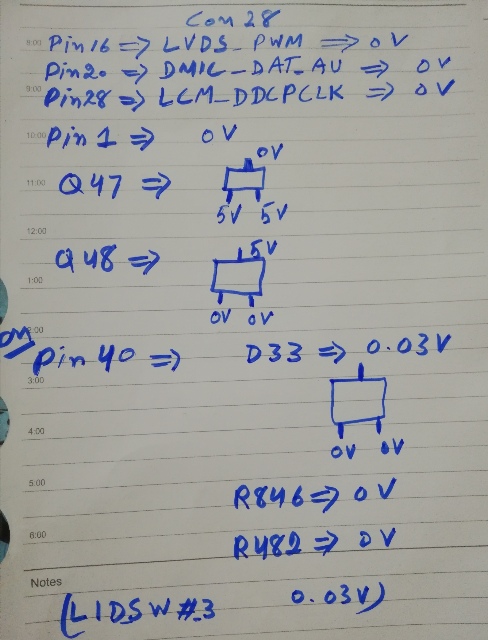 Con 28
8:00 Pin16 => LVDS_PWM => 0V
Pin20 => DMIC_DAT_AU => 0V
9:00 Pin28 => LCM_DDCPCLK => 0V
10:00 Pin 1 => 0V
0V
11:00 Q47 =>
5V 5V
12:00
Q48 => 5V
1:00
0V 0V
2:00
Pin 40 => D33 => 0.03V
3:00
4:00
0V 0V
5:00
R846 => 0V
6:00 R482 => 0V
Notes
(LIDSW#3 0.03V)